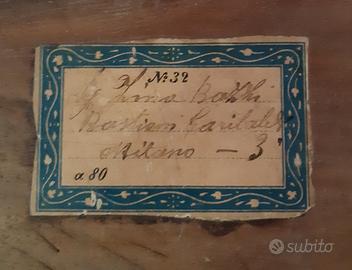 № 32
Bozzi
Bastioni Garibaldi
Milano — 3
a 80
subito